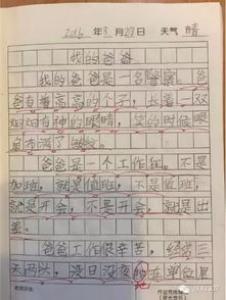 2016年3月27日 天气 晴
我的爸爸
我的爸爸是一名警察。爸
爸有着高高的个子,长着一双
炯炯有神的眼睛,笑的时候眼
角布满了皱纹。
爸爸是一个工作狂,不是
加班,就是值班,不是值班,
就是开会,不是开会,就是出
差。
爸爸工作很辛苦,经常三
天两头,没日没夜地在单位里